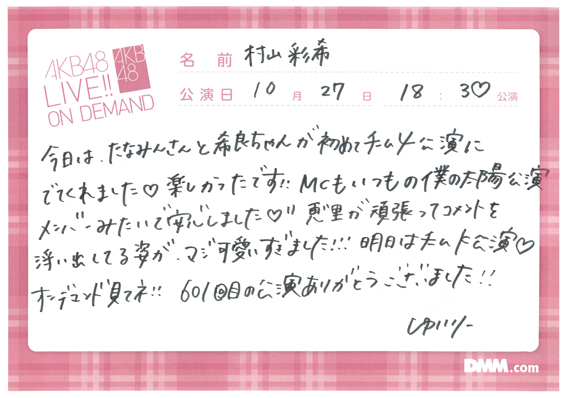 AKB48
LIVE!!
ON DEMAND
AKB
48
名前 村山彩希
公演日 10月27日 18:30公演
今日は、たなみんさんと希良ちゃんが初めてチーム4公演に
でてくれました♡ 楽しかったです!! MCもいつもの僕の太陽公演
メンバーみたいで安心しました♡!! 恵里が頑張ってコメントを
浮い出してる姿が、マジ可愛いすぎました!!! 明日はチームK公演♡
オンデマンド見てネ!! 601回目の公演ありがとうございました!!
ゆいりー
DMM.com